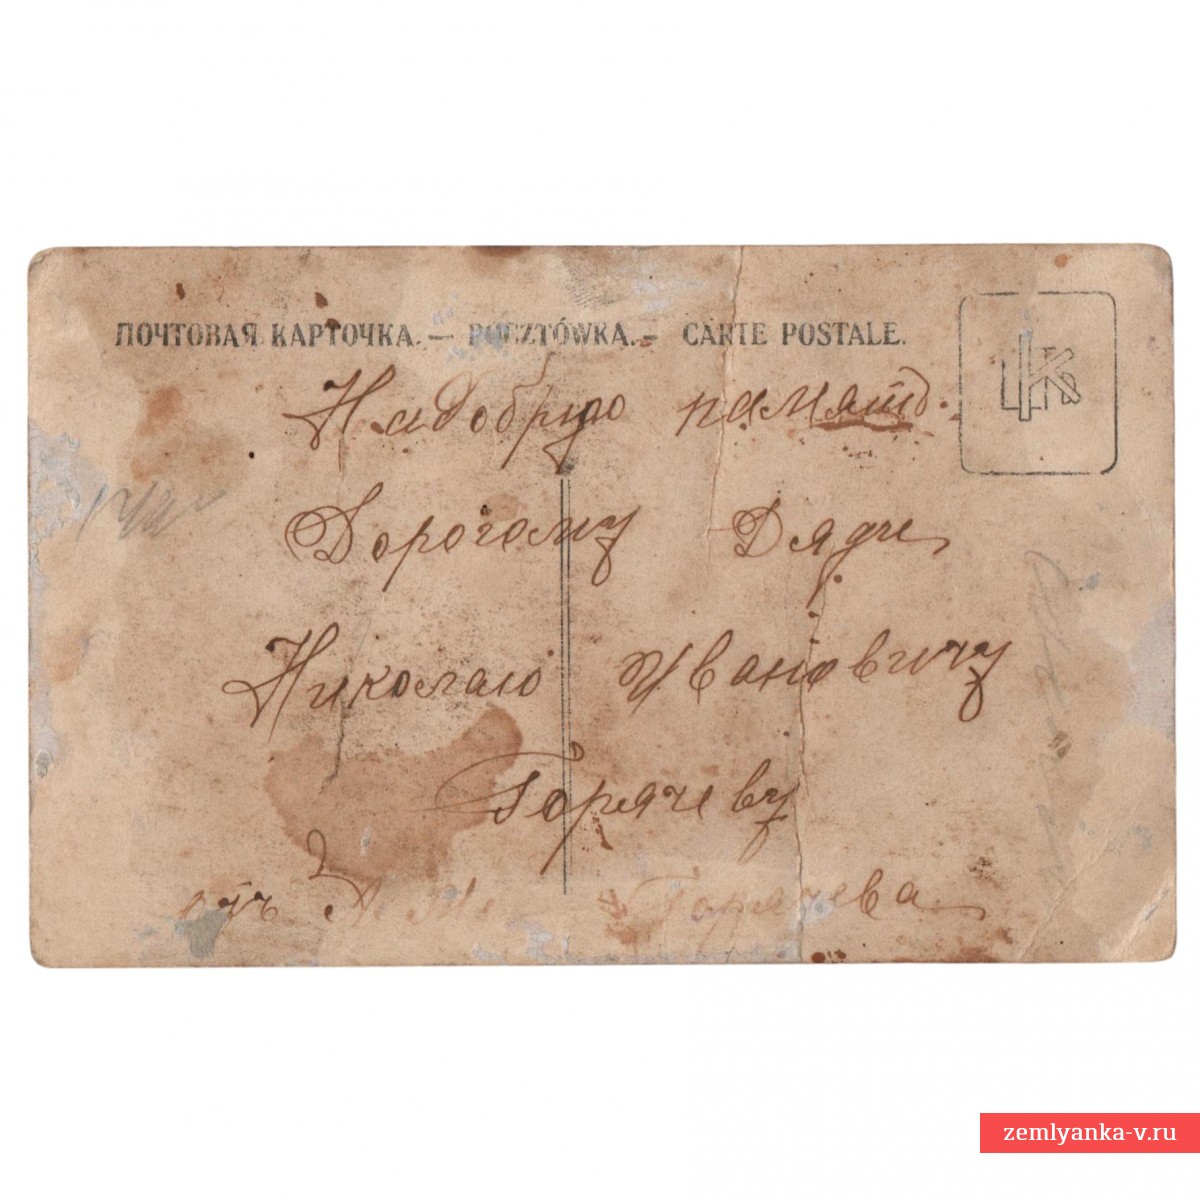 ПОЧТОВАЯ КАРТОЧКА. — POCZTÓWKA. — CARTE POSTALE.
На добрую память.
Дорогому Дяде
Николаю Ивановичу
Горячеву
отъ Горячева
zemlyanka-v.ru